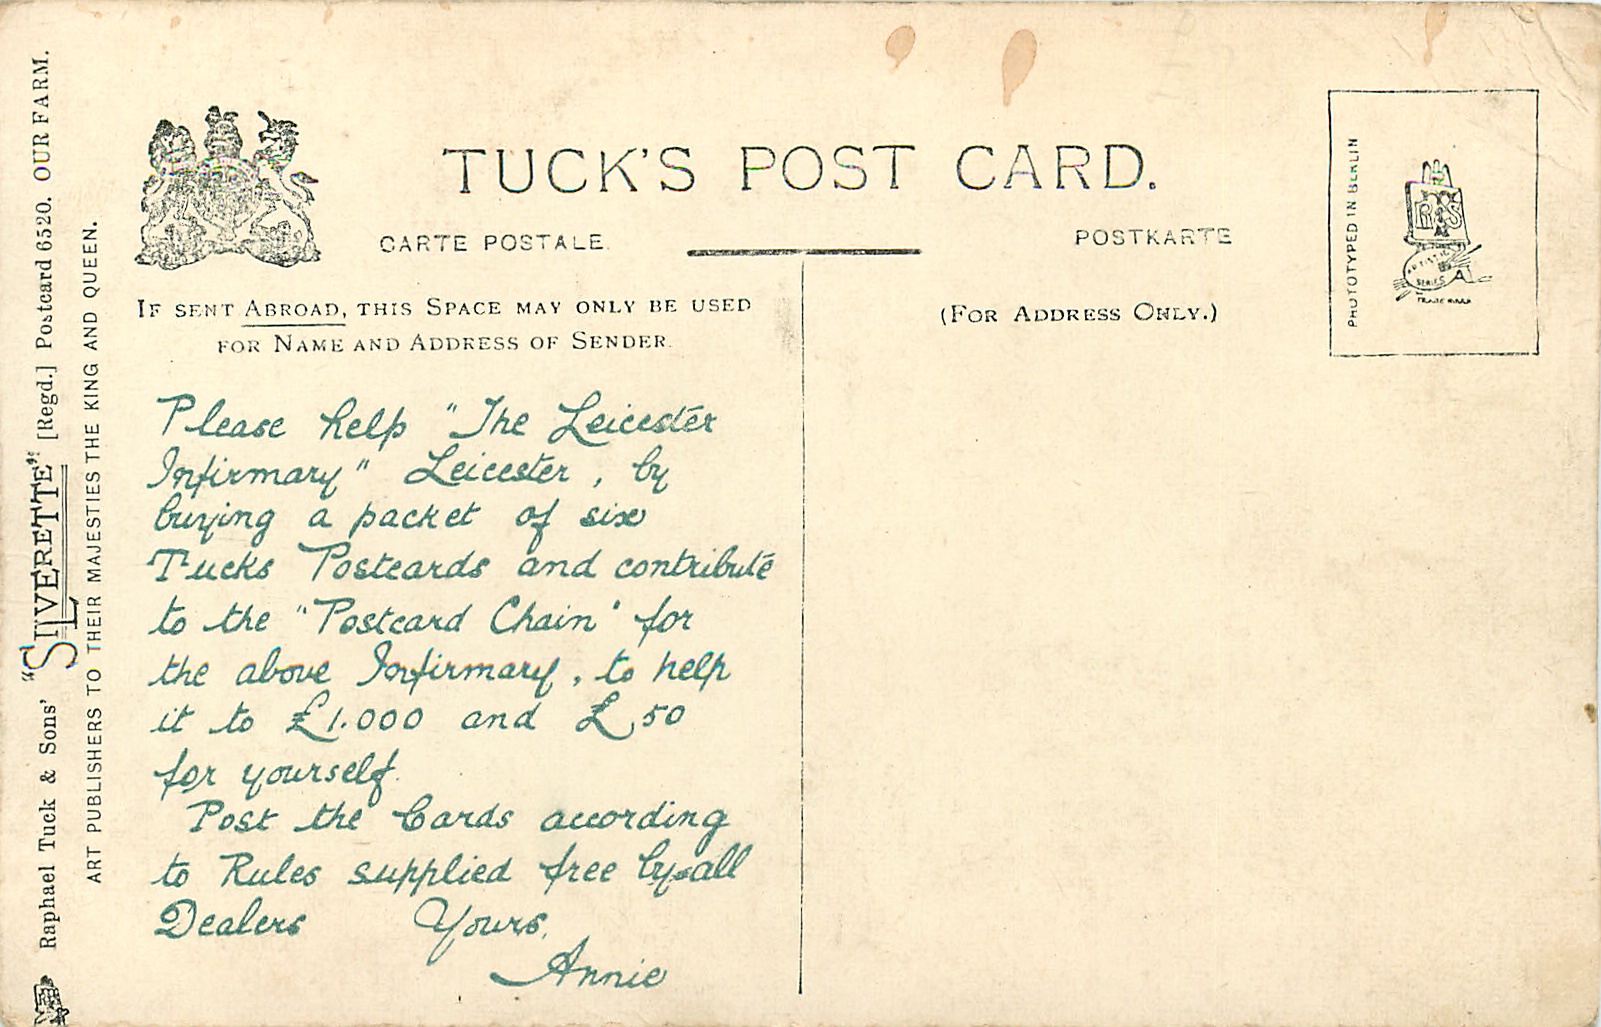 TUCK'S POST CARD.
CARTE POSTALE.
POSTKARTE
IF SENT ABROAD, THIS SPACE MAY ONLY BE USED
FOR NAME AND ADDRESS OF SENDER.
(FOR ADDRESS ONLY.)
PHOTOTYPED IN BERLIN
R T S
ARTISTIC
SERIES
TRADE MARK
Please help "The Leicester
Infirmary" Leicester, by
buying a packet of six
Tucks Postcards and contribute
to the "Postcard Chain" for
the above Infirmary, to help
it to £1.000 and £50
for yourself.
Post the Cards according
to Rules supplied free by all
Dealers Yours,
Annie
Raphael Tuck & Sons' "SILVERETTE" [Regd.] Postcard 6520. OUR FARM.
ART PUBLISHERS TO THEIR MAJESTIES THE KING AND QUEEN.